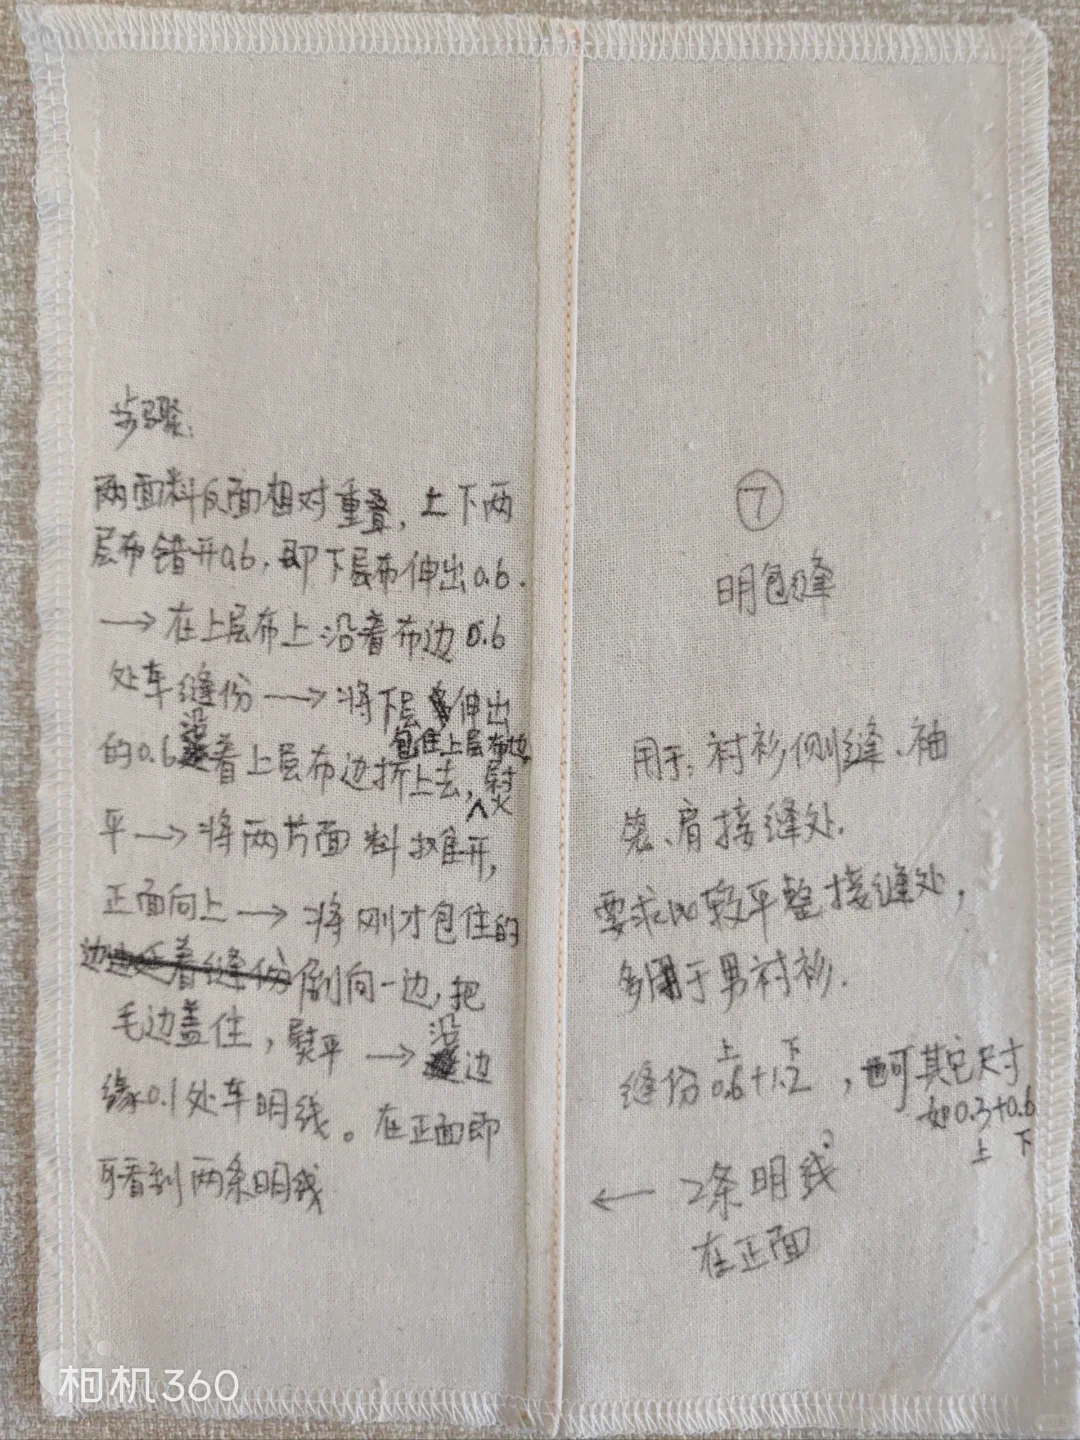 步骤:
两面料反面相对重叠，上下两
层布错开0.6，即下层布伸出0.6.
→在上层布上沿着布边0.6
处车缝份→将下层伸出
的0.6沿着上层布边折上去，包住上层布边熨
平→将两片面料摊开，
正面向上→将刚才包住的
边沿着缝份倒向一边，把
毛边盖住，熨平→沿边
缘0.1处车明线。在正面即
可看到两条明线
⑦
明包缝
用于：衬衫侧缝、袖
笼、肩接缝处.
要求比较平整接缝处，
多用于男衬衫.
上 下
缝份0.6+1.2，也可其它尺寸
如0.3+0.6
上 下
←2条明线
在正面
相机360